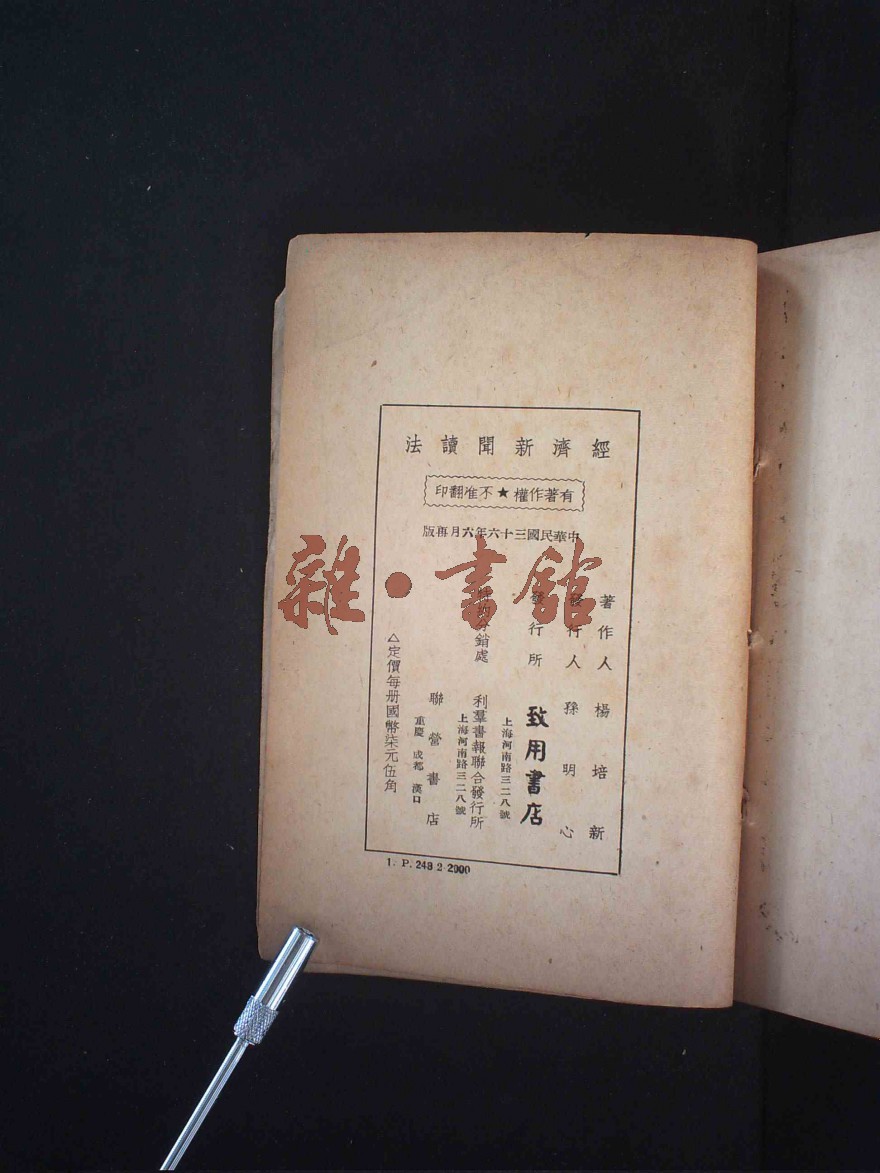 經濟新聞讀法
有著作權★不准翻印
中華民國三十六年六月再版
著作人 楊培新
發行人 孫明心
發行所 致用書店
上海河南路三二八號
特約分銷處 利羣書報聯合發行所
上海河南路三二八號
聯營書店
重慶 成都 漢口
△定價每册國幣柒元伍角
1. P. 248 2-2000
雜·書館